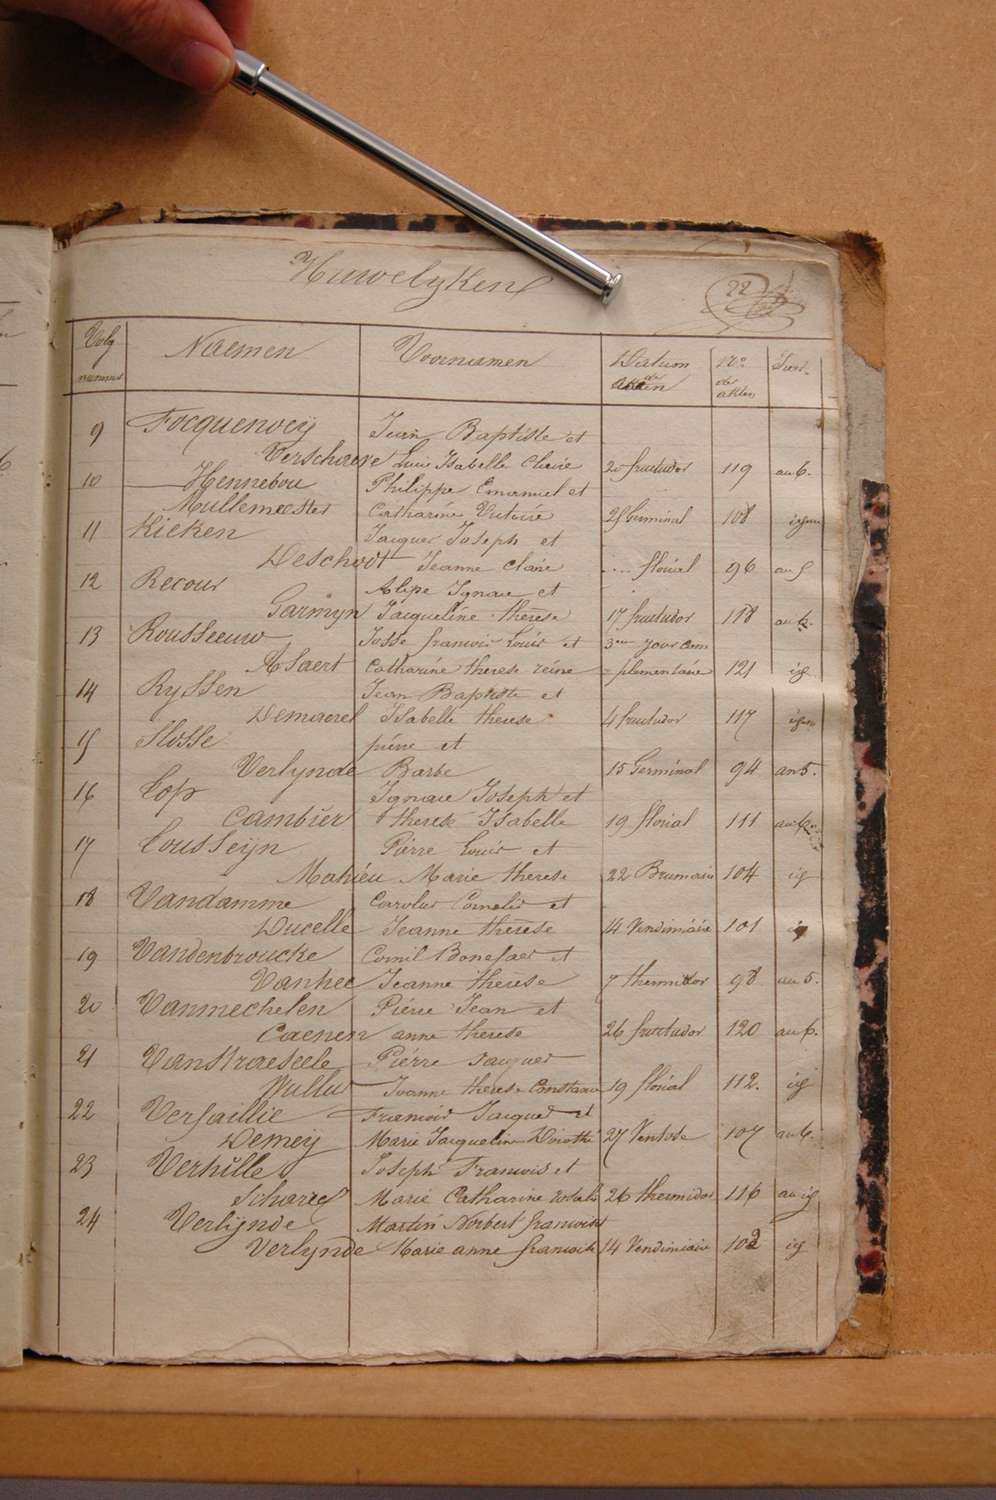 Huwelyken
22
Volg nummers Naemen Voornamen Datum der akten No. der akten Jaer.
9 Focquenoey Jean Baptiste et
Verschaeve Luis Isabelle Claire 20 fructidor 119 an 6.
10 Hennebou Philippe Emanuel et
Mullemeester Catharine Victoire 25 Germinal 108
11 Kieken Jacques Joseph et
Deschodt Jeanne Claire floriel 96 an 5
12 Recour Alipe Ignace et
Garmyn Jacqueline therese 17 fructidor 118 an 6.
13 Rousseeuw Josse francois Louis et 3me jour com
Asaert Catharine therese reine = plimentaire 121 id
14 Ryssen Jean Baptiste et
Demaerel Isabelle therese 4 fructidor 117
15 Slosse pierre et
Verlynde Barbe 15 Germinal 94 an 5.
16 Top Ignace Joseph et
Cambier therese Isabelle 19 florial 111 an 6.
17 Tousseyn Pierre Louis et
Mahieu Marie therese 22 Brumaire 104 id
18 Vandamme Carolus Cornelis et
Ducelle Jeanne therese 14 Vendimiaire 101 id
19 Vandenbroucke Cornil Bonefaes et
Vanhee Jeanne Therese 7 thermidor 98 an 5.
20 Vanmechelen Pierre Jean et
Coenen anne therese 26 fructidor 120 an 6.
21 Vanstraeseele Pierre Jacques
Wullus Jeanne therese Constance 19 florial 112. id
22 Versaillie Francois Jacques et
Demey Marie Jacqueline Dorothé 27 Ventose 107 an 6.
23 Verhille Joseph Francois et
Marie Catharine rosalie 26 thermidor 116 an id
24 Verlynde Martin Norbert francois
Verlynde Marie anne francoise 14 Vendimiaire 102 id